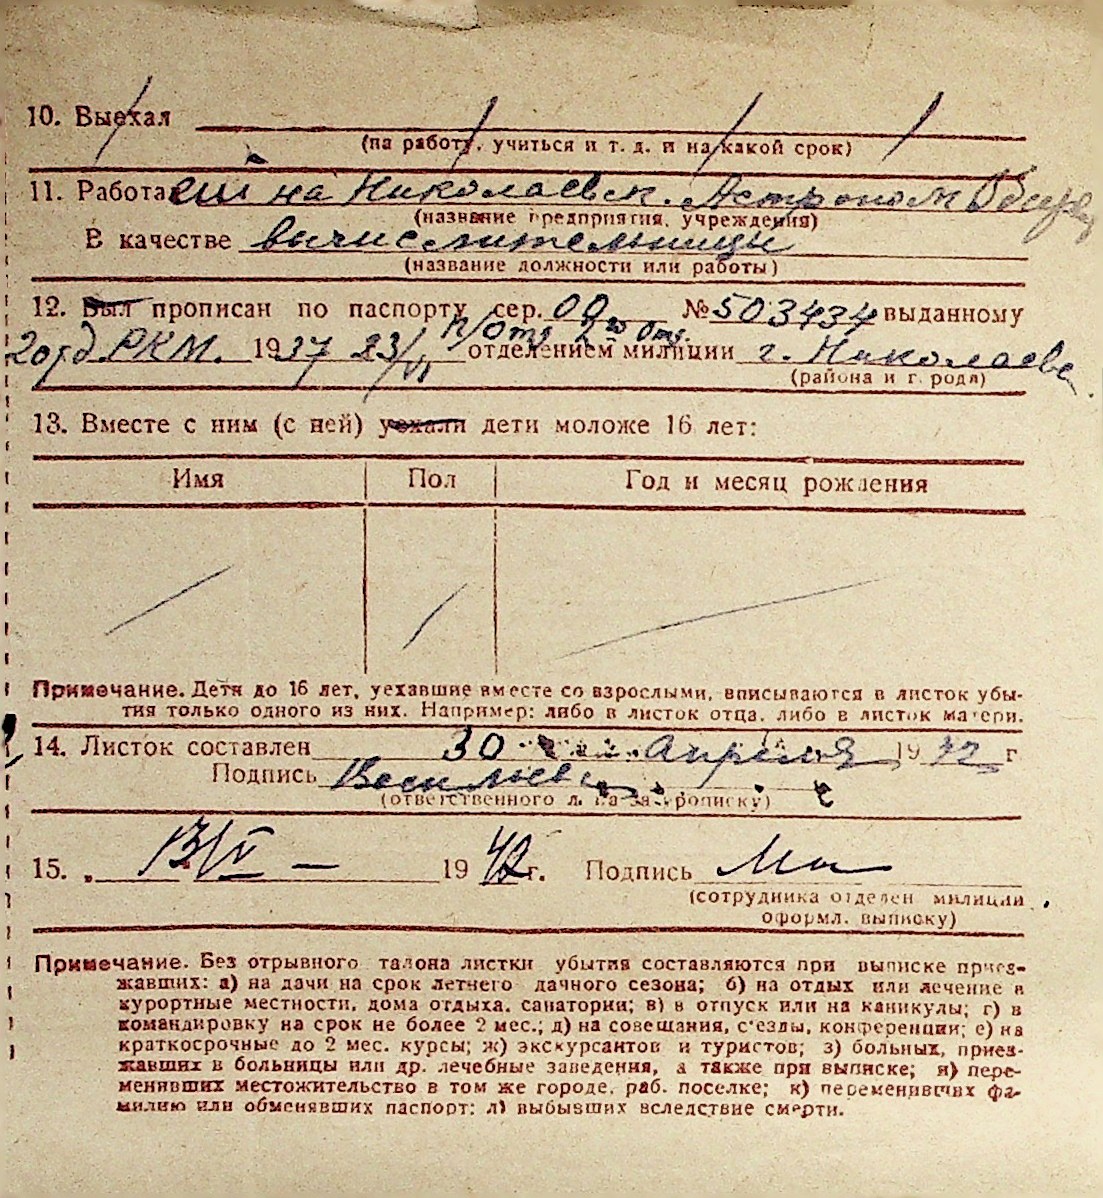 10. Выехал
(на работу, учиться и т. д. и на какой срок)
11. Работа ет на Николаевск. Астроном Обсер
(название предприятия, учреждения)
В качестве вычислительницы
(название должности или работы)
12. Был прописан по паспорту сер. 00 № 503434 выданному
п/отд 2го отд.
2 отд РКМ. 1937 23/VI отделением милиции г. Николаева
(района и города)
13. Вместе с ним (с ней) уехали дети моложе 16 лет:
Имя Пол Год и месяц рождения
Примечание. Дети до 16 лет, уехавшие вместе со взрослыми, вписываются в листок убы-
тия только одного из них. Например: либо в листок отца, либо в листок матери.
14. Листок составлен 30 апреля 1942 г
Подпись
(ответственного л. на за прописку)
15. 13/V — 1942 г. Подпись
(сотрудника отделен милиции
оформл. выписку)
Примечание. Без отрывного талона листки убытия составляются при выписке приез-
жавших: а) на дачи на срок летнего дачного сезона; б) на отдых или лечение в
курортные местности, дома отдыха, санатории; в) в отпуск или на каникулы; г) в
командировку на срок не более 2 мес.; д) на совещания, с'езды, конференции; е) на
краткосрочные до 2 мес. курсы; ж) экскурсантов и туристов; з) больных, приез-
жавших в больницы или др. лечебные заведения, а также при выписке; и) пере-
менивших местожительство в том же городе, раб. поселке; к) переменивших фа-
милию или обменявших паспорт; л) выбывших вследствие смерти.